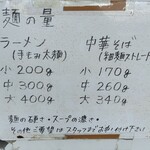 麺の量
ラーメン
(手もみ太麺)
小 200g
中 300g
大 400g
中華そば
(細麺ストレート)
小 170g
中 260g
大 340g
麺の硬さ・スープの濃さ・
その他ご要望はスタッフまでお申し付け下さい